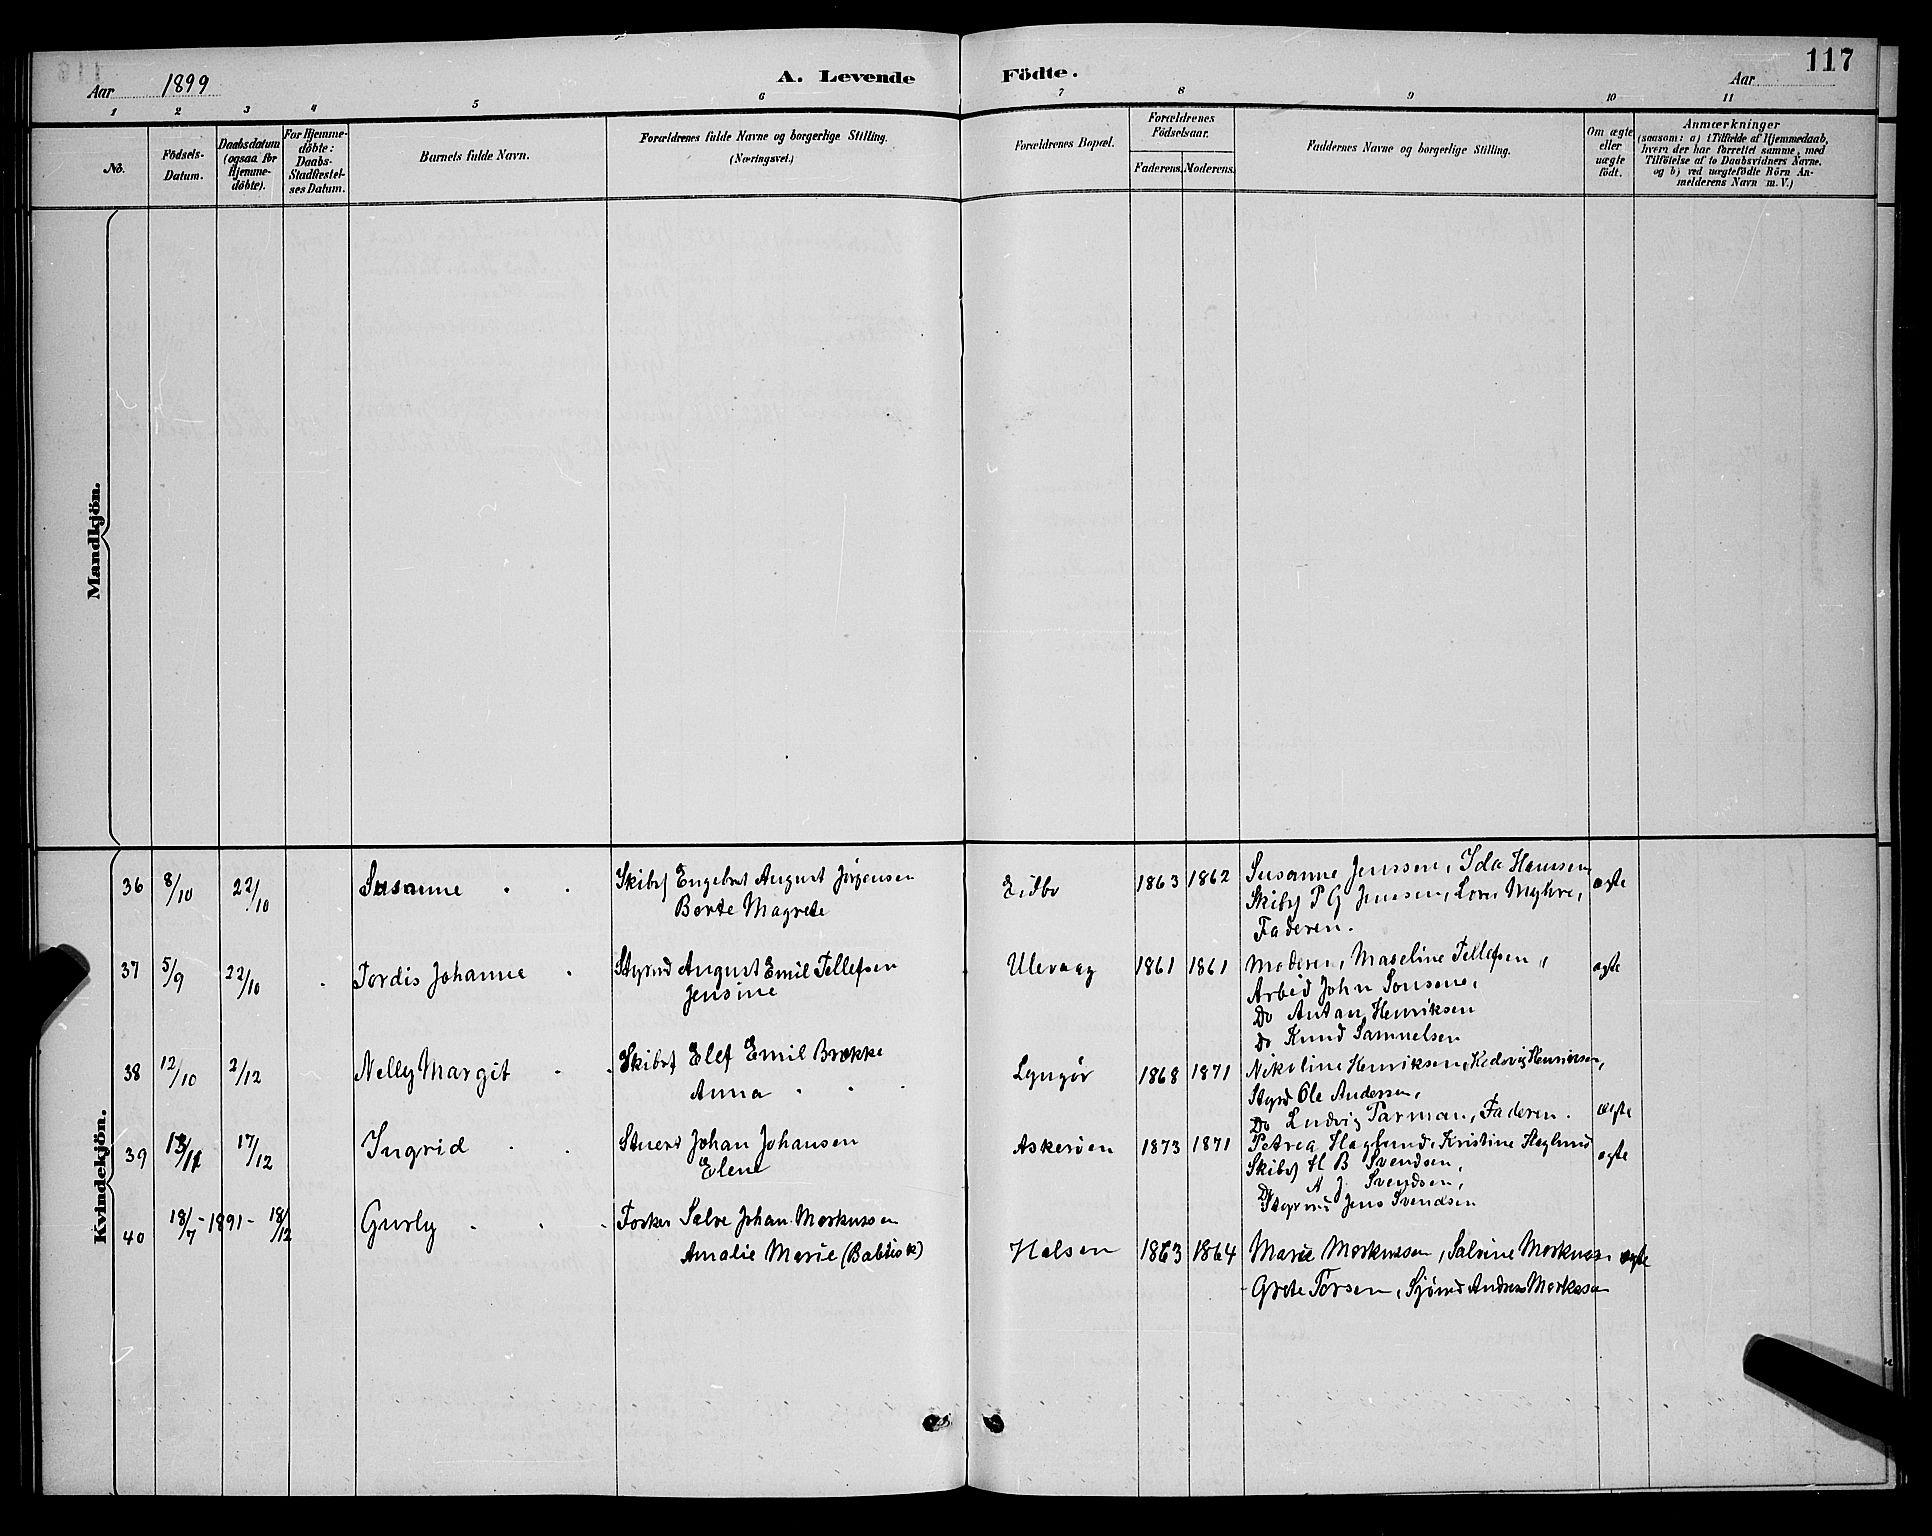 117
Aar 1899 A. Levende Födte. Aar
1 2 3 4 5 6 7 8 9 10 11
No.
Födsels-Datum.
Daabsdatum (ogsaa for Hjemme-döbte).
For Hjemme-döbte: Daabs-Stadfæstel-ses Datum.
Barnets fulde Navn.
Forældrenes fulde Navne og borgerlige Stilling.
(Næringsvei.)
Forældrenes Bopæl.
Forældrenes Födselsaar.
Faderens. Moderens.
Faddernes Navne og borgerlige Stilling.
Om ægte eller uægte födt.
Anmærkninger
(saasom: a) i Tilfælde af Hjemmedaab,
hvem der har forrettet samme, med
Tilföielse af to Daabsvidners Navne.
og b) ved uægtefödte Börn An-
melderens Navn m. V.)
Mandkjön.
Kvindekjön.
36 8/10 22/10 Susanne Skibsf Engebret August Jørgensen Eidbo 1863 1862 Susanne Jenssen, Ida Hanssen ægte
Berte Magrete Skibsf P G Jenssen, Myhre,
Faderen.
37 5/9 22/10 Tordis Johanne Styrmd August Emil Tellefsen Ulevaag 1861 1861 Moderen, Maseline Tellefsen, ægte
Jensine Arbeid John Sonsene,
Do Antan Henriksen
Do Knud Samuelsen
38 12/10 2/12 Nelly Margit Skibsf Elef Emil Brække Lyngør 1868 1871 Nikoline Henriksen, Hedevig Henriksen,
Anna Styrd Ole Andersen,
Do Ludvig Parman, Faderen. ægte
39 13/11 17/12 Ingrid Stuert Johan Johansen Askerøen 1873 1871 Petrea Haglund, Kristine Haglund ægte
Elene Skibsf H B Svendsen,
Do A J. Svendsen,
Styrm Jens Svendsen
40 18/7 - 1891 - 18/12 Gurly Fosker Salve Johan Markussen
Amalie Marie (Babtist) Halsen 1863 1864 Marie Markussen, Salvine Markussen ægte
Grete Torsen, Sjømd Andreas Markussen